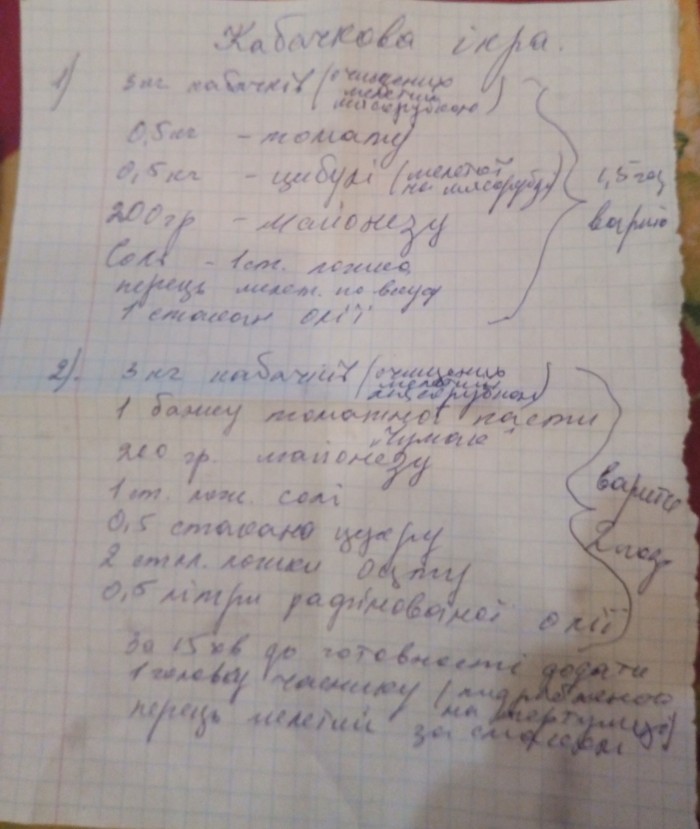 Кабачкова ікра.
1) 3 кг кабачків (очищених
мелетих
мясорубкою)
0,5 кг - томату
0,5 кг - цибулі (мелетої
на мясорубці)
200 гр - майонезу
Соль - 1 ст. ложка
перець мелет. по вкусу
1 стакан олії
1,5 год
варити
2). 3 кг кабачків (очищених
мелетих
мясорубкою)
1 банку томатної пасти
"Чумак"
200 гр. майонезу
1 ст. лож. солі
0,5 стакана цукру
2 стол. ложки оцту
0,5 літри рафінованої олії
варити
2 год
За 15 хв до готовності додати
1 головку часнику (подрібненою
на тертушці)
перець мелетий за смаком